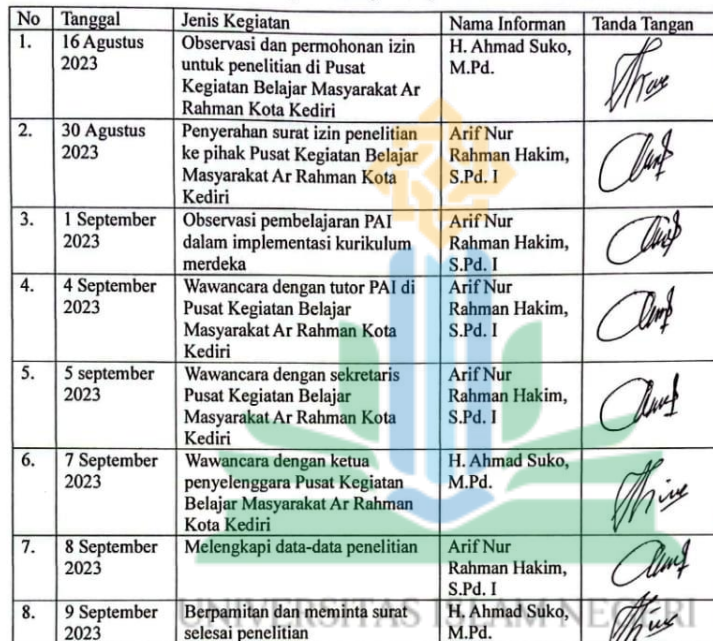 No Tanggal Jenis Kegiatan Nama Informan Tanda Tangan
1. 16 Agustus 2023 Observasi dan permohonan izin untuk penelitian di Pusat Kegiatan Belajar Masyarakat Ar Rahman Kota Kediri H. Ahmad Suko, M.Pd.
2. 30 Agustus 2023 Penyerahan surat izin penelitian ke pihak Pusat Kegiatan Belajar Masyarakat Ar Rahman Kota Kediri Arif Nur Rahman Hakim, S.Pd. I
3. 1 September 2023 Observasi pembelajaran PAI dalam implementasi kurikulum merdeka Arif Nur Rahman Hakim, S.Pd. I
4. 4 September 2023 Wawancara dengan tutor PAI di Pusat Kegiatan Belajar Masyarakat Ar Rahman Kota Kediri Arif Nur Rahman Hakim, S.Pd. I
5. 5 september 2023 Wawancara dengan sekretaris Pusat Kegiatan Belajar Masyarakat Ar Rahman Kota Kediri Arif Nur Rahman Hakim, S.Pd. I
6. 7 September 2023 Wawancara dengan ketua penyelenggara Pusat Kegiatan Belajar Masyarakat Ar Rahman Kota Kediri H. Ahmad Suko, M.Pd.
7. 8 September 2023 Melengkapi data-data penelitian Arif Nur Rahman Hakim, S.Pd. I
8. 9 September 2023 Berpamitan dan meminta surat selesai penelitian H. Ahmad Suko, M.Pd.
UNIVERSITAS ISLAM NEGERI